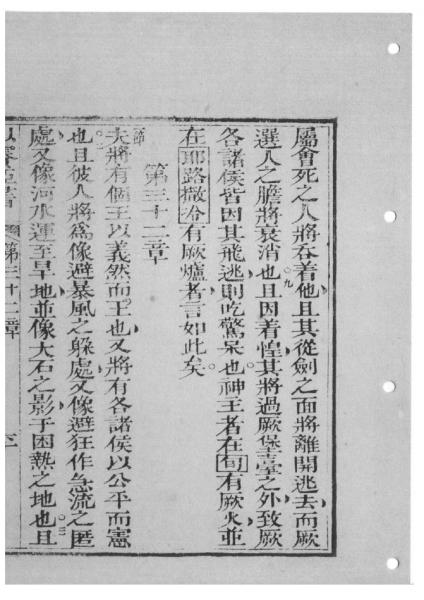 屬會死之人將吞着他且其從劍之面將離開逃去而厥
選人之膽將衰消也且因着惶其將過厥堡
之外致厥
各諸侯皆因其飛逃則吃驚呆也神王者在旬有厥火並
在耶路撒冷有厥爐者言如此矣
第三十二章
夫將有個王以義然而王也又將有各諸侯以公平而憲
也且彼人將爲像避暴風之躲處又像避狂作
流之匿
處又像河水運至旱地並像大石之影于困熱之地也且
第三十二章